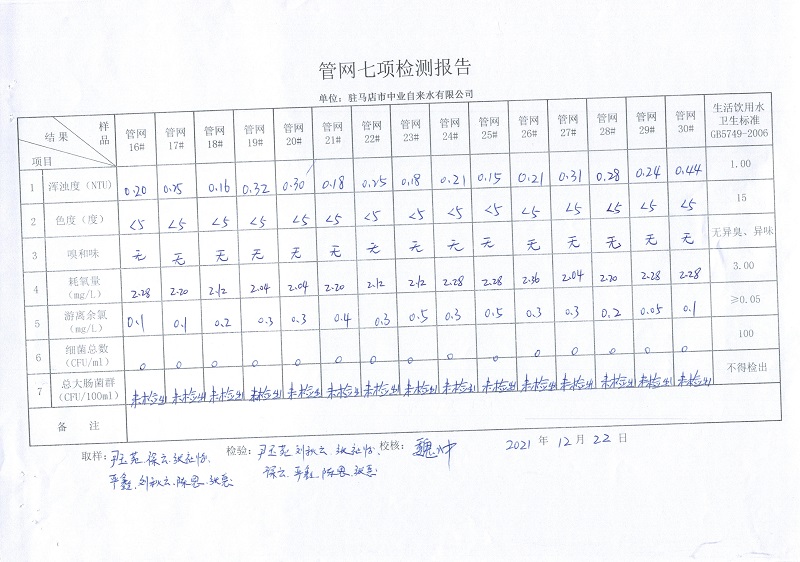 管网七项检测报告
单位：驻马店市中业自来水有限公司
结果 样品 项目 管网16# 管网17# 管网18# 管网19# 管网20# 管网21# 管网22# 管网23# 管网24# 管网25# 管网26# 管网27# 管网28# 管网29# 管网30# 生活饮用水卫生标准GB5749-2006
1 浑浊度（NTU） 0.20 0.25 0.16 0.32 0.30 0.18 0.25 0.18 0.21 0.15 0.21 0.31 0.28 0.24 0.44 1.00
2 色度（度） <5 <5 <5 <5 <5 <5 <5 <5 <5 <5 <5 <5 <5 <5 <5 15
3 嗅和味 无 无 无 无 无 无 无 无 无 无 无 无 无 无 无 无异臭、异味
4 耗氧量（mg/L） 2.28 2.20 2.12 2.04 2.04 2.20 2.12 2.12 2.28 2.28 2.36 2.04 2.20 2.28 2.28 3.00
5 游离余氯（mg/L） 0.1 0.1 0.2 0.3 0.3 0.4 0.3 0.5 0.3 0.5 0.3 0.3 0.2 0.05 0.1 ≥0.05
6 细菌总数（CFU/ml） 0 0 0 0 0 0 0 0 0 0 0 0 0 0 0 100
7 总大肠菌群（CFU/100ml） 未检出 未检出 未检出 未检出 未检出 未检出 未检出 未检出 未检出 未检出 未检出 未检出 未检出 未检出 未检出 不得检出
备 注
取样： 检验： 校核： 2021 年 12 月 22 日